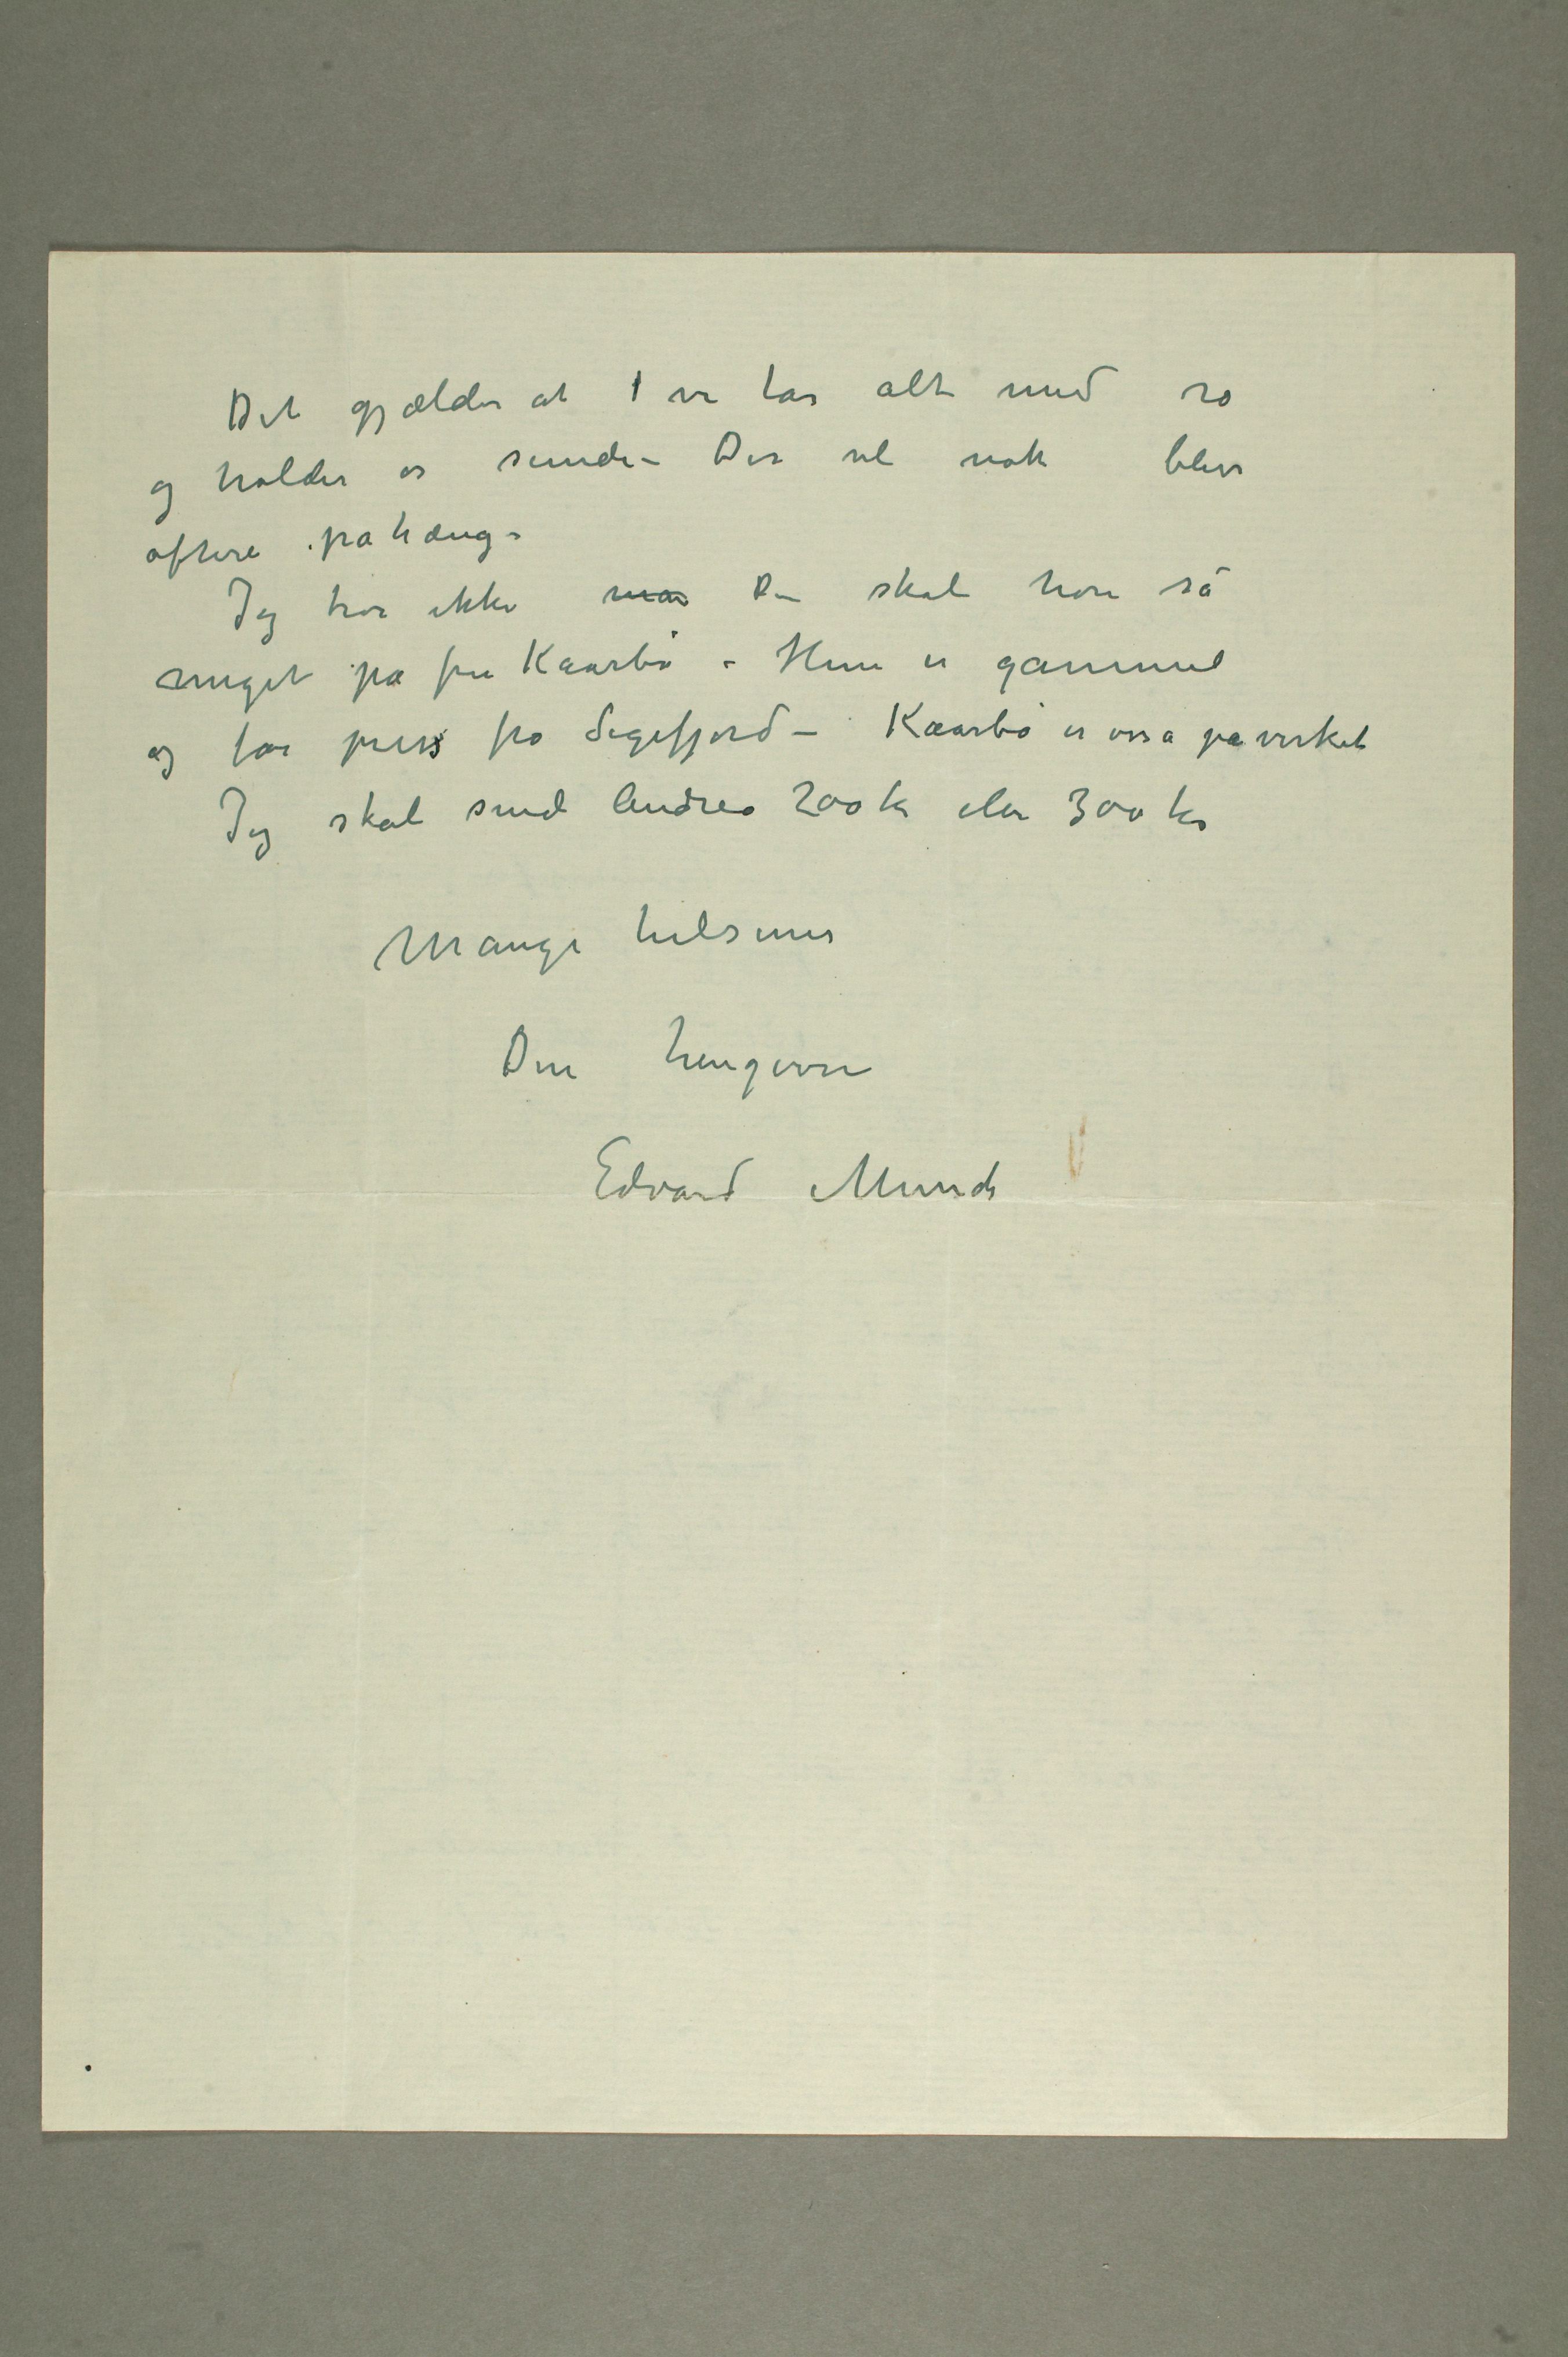 Det gjælder at vi tar alt med ro
og holder os sunde – Der vil nok blive
oftere påhæng –
Jeg tror ikke man Du skal høre så
meget på fru Kaarbø – Hun er gammel
og får press fra Sigefjord – Kaarbø er osså påvirket
Jeg skal sende Andrea 200 kr eller 300 kr
Mange hilsener
Din hengivne
Edvard Munch